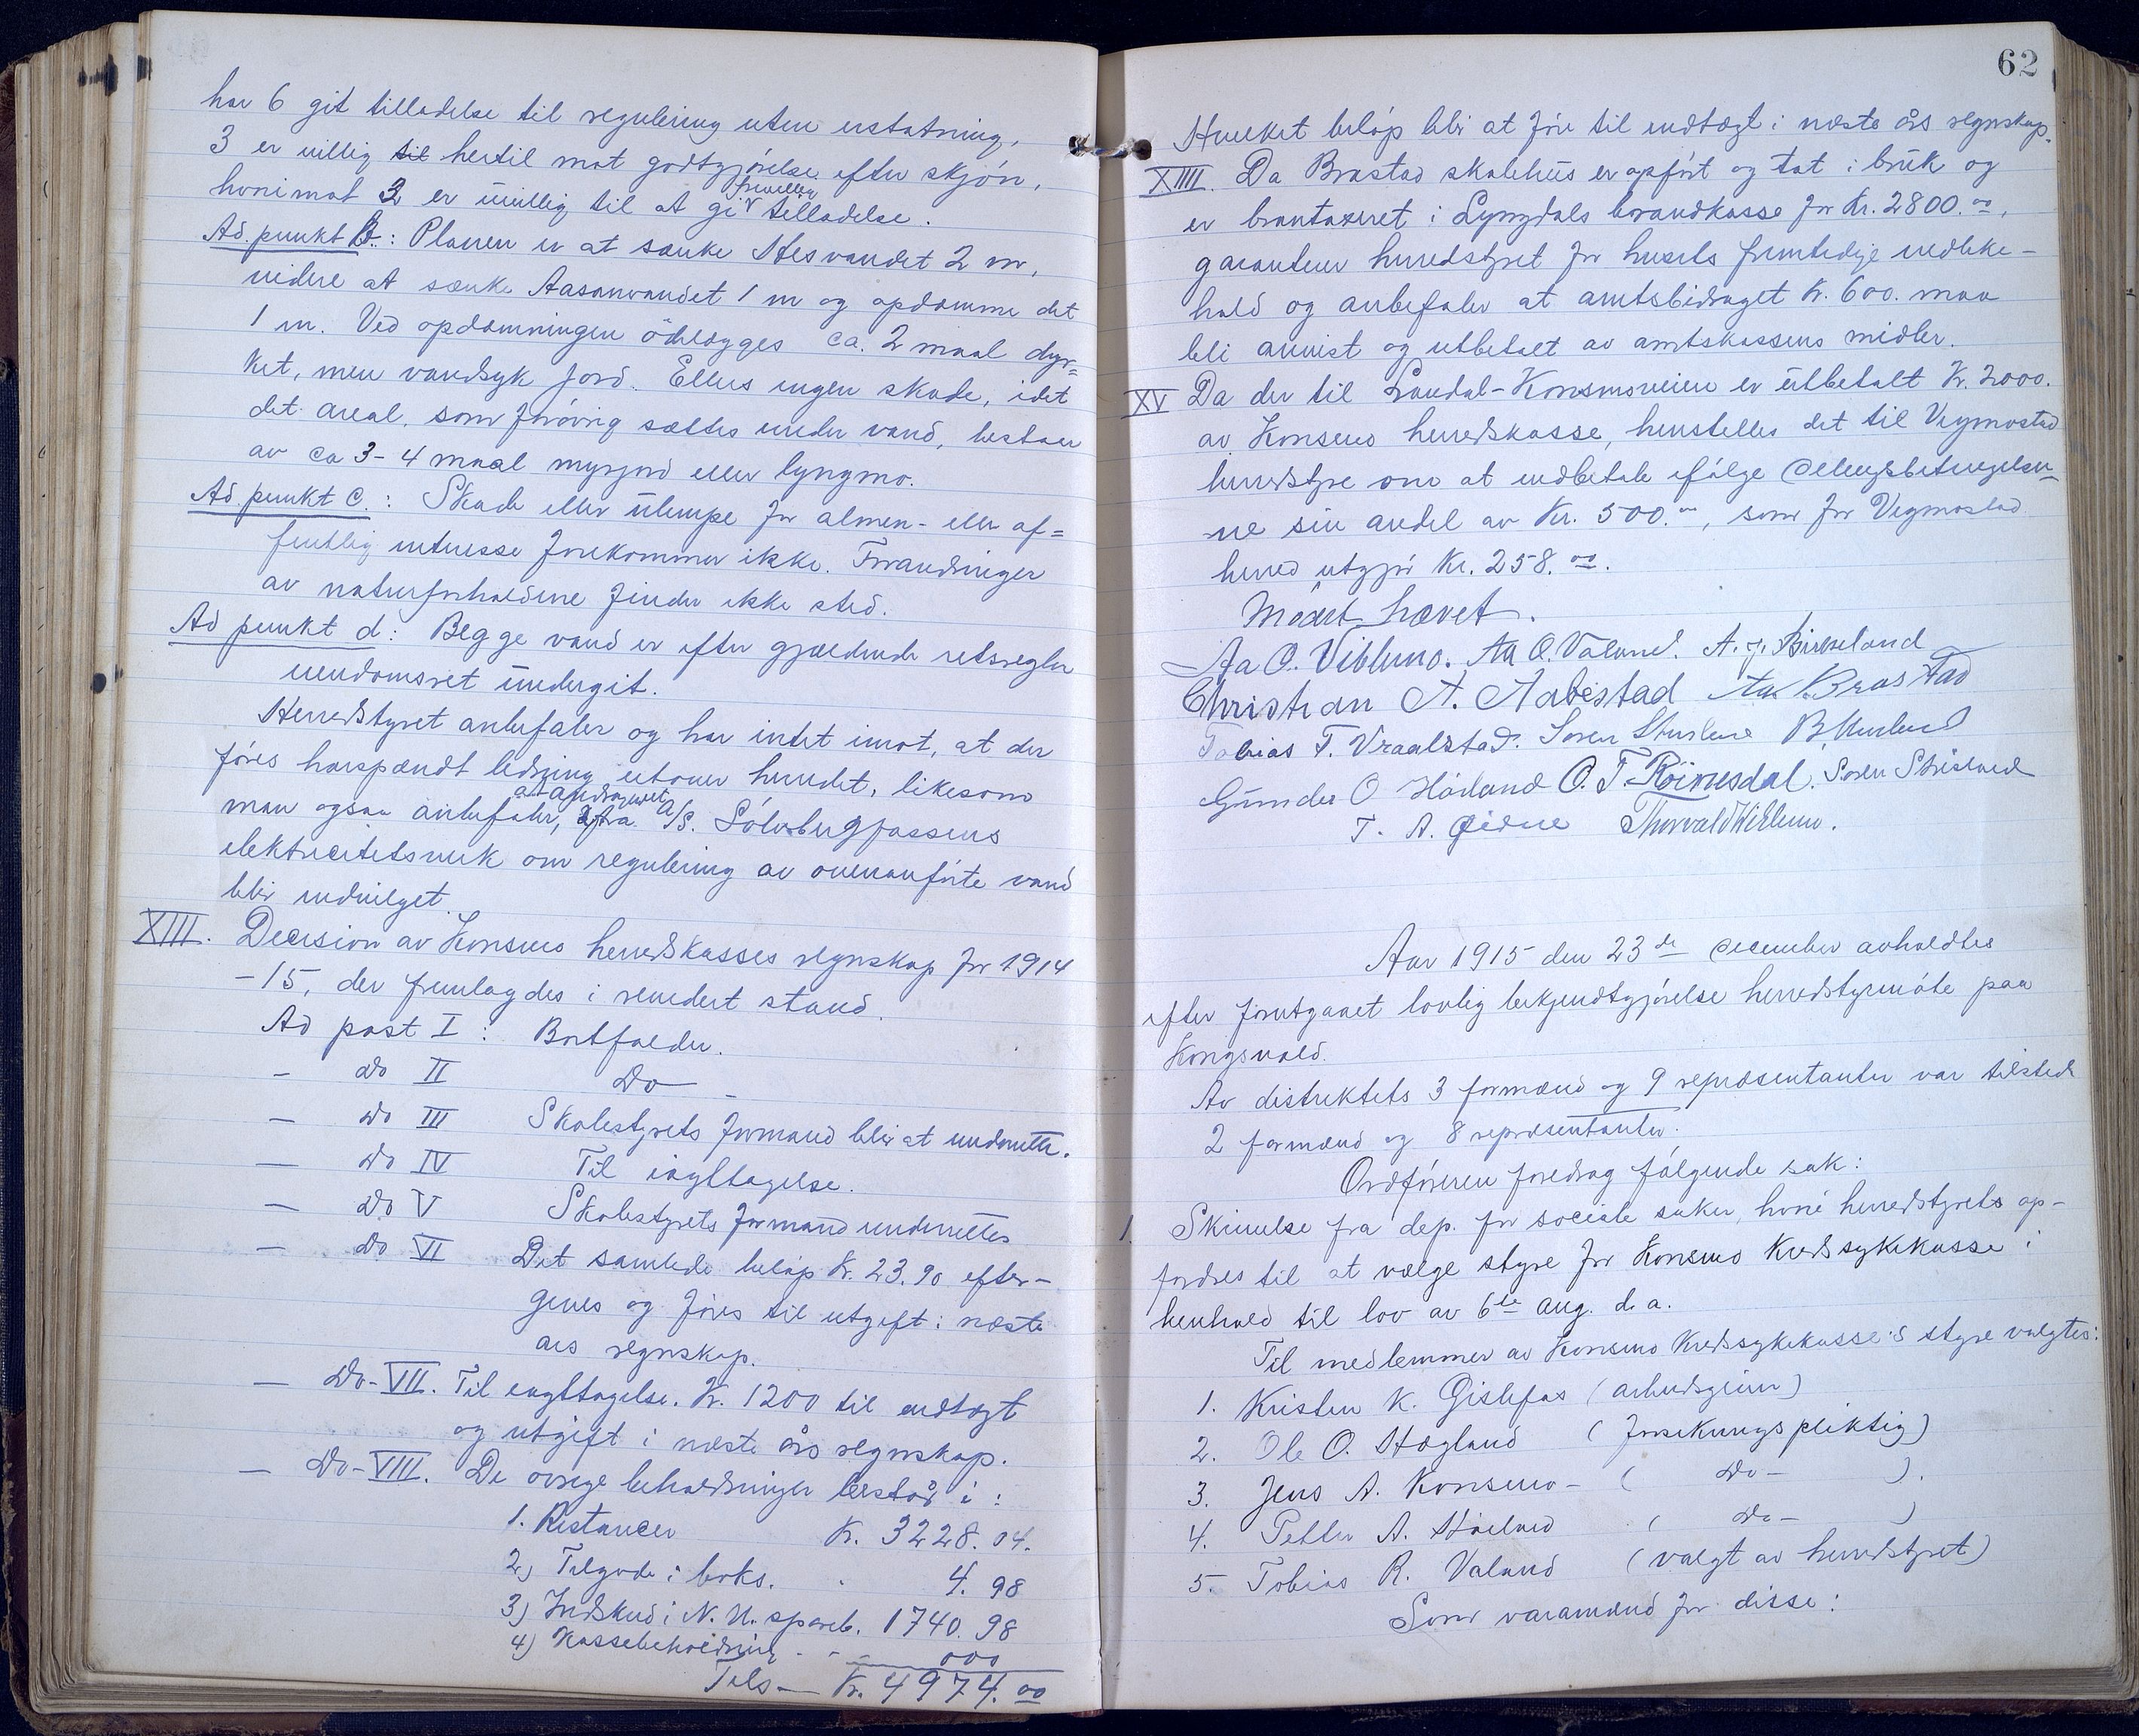 har 6 git tilladelse til regulering uten erstatning,
3 er villig til hertil mot godtgjørelse efter skjøn,
hvorimot 2 er uvillig til at gi frivillig tilladelse.
Ad. punkt B.: Planen er at sænke Hesvandet 2 m,
videre at sænke Aasanvandet 1 m og opdæmme det
1 m. Ved opdæmningen ödelægges ca. 2 maal dyr=
ket, men vandsyk jord. Ellers ingen skade, idet
det areal, som forövrig sættes under vand, bestaar
av ca 3-4 maal myrjord eller lyngmo.
Ad. punkt c.: Skade eller ulempe for almen- eller of=
fentlig interesse forekommer ikke. Forandringer
av naturforholdene finder ikke sted.
Ad punkt d: Begge vand er efter gjældende retsregler
eiendomsret undergit.
Herredstyret anbefaler og har intet imot, at der
föres høispændt ledning utover herredet, likesom
man ogsaa anbefaler, at andragendet fra A/S. Sölvsbergfossens
elektricitetsverk om regulering av ovenanförte vand
blir indvilget.
XIII. Decision av Konsmo herredskasses regnskap for 1914
-15, der fremlagdes i revidert stand.
Ad post I: Bortfalder.
- do II Do -
- do III Skolestyrets formand blir at underrette.
- do IV Til iagttagelse.
- do V Skolestyrets formand underrettes
- do VI Det samlede beløp Kr. 23.90 efter-
gives og föres til utgift i næste
aars regnskap.
- Do - VII. Til iagttagelse. Kr. 1200 til indtægt
og utgift i næste års regnskap.
- Do - VIII. De øvrige beholdninger består i:
1. Restancer Kr. 3228.04.
2) Tilgode i boks. 4.98
3) Indskud i N. U. spareb. 1740.98
4) Kassebeholdning - - - 000
Tils — Kr. 4974.00
62
Hvilket beløp blir at före til indtægt i næste års regnskap.
XIIII. Da Brastad skolehus er opfört og tat i bruk og
er brantaxeret i Lyngdals brandkasse for Kr. 2800.00,
garanterer herredstyret for husets fremtidige vedlike-
hold og anbefaler at amtsbidraget Kr. 600. maa
bli anvist og utbetalt av amtskassens midler.
XV Da der til Laudal-Konsmoveien er utbetalt Kr. 2000.
av Konsmo herredskasse, henstilles det til Vigmostad
herredstyre om at indbetale ifølge delingsbetingelser=
ne sin andel av Kr. 500.00, som for Vigmostad
herred utgjör Kr. 258.00.
Mödet hævet.
Aa O. Viblemo. Aa O. Valand. A. J. Birkeland
Christian A. Aabestad Aa K Brastad
Tobias T. Vraalstad. Soren B
Gunder O Höiland O. T. Röinesdal. Soren
T. A. Øidne Thorvald Viblemo.
Aar 1915 den 23de december avholdtes
efter forutgaaet lovlig bekjendtgjörelse herredstyremöte paa
Kongsvold.
Av distriktets 3 formænd og 9 repræsentanter var tilstede
2 formænd og 8 repræsentanter.
Ordföreren foredrog fölgende sak:
1. Skrivelse fra dep. for sociale saker, hvori herredstyrets op-
fordres til at vælge styre for Konsmo Kredssykekasse i
henhold til lov av 6te aug. d. a.
Til medlemmer av Konsmo Kredssykekasse's styre valgtes:
1. Kristen K. Gislefos (arbeidsgiver)
2. Ole O. Hægland (forsikringspliktig)
3. Jens A. Konsmo - ( Do - ).
4. Petter A. Höiland ( Do - )
5. Tobias R. Valand (valgt av herredstyret)
Som varamænd for disse: